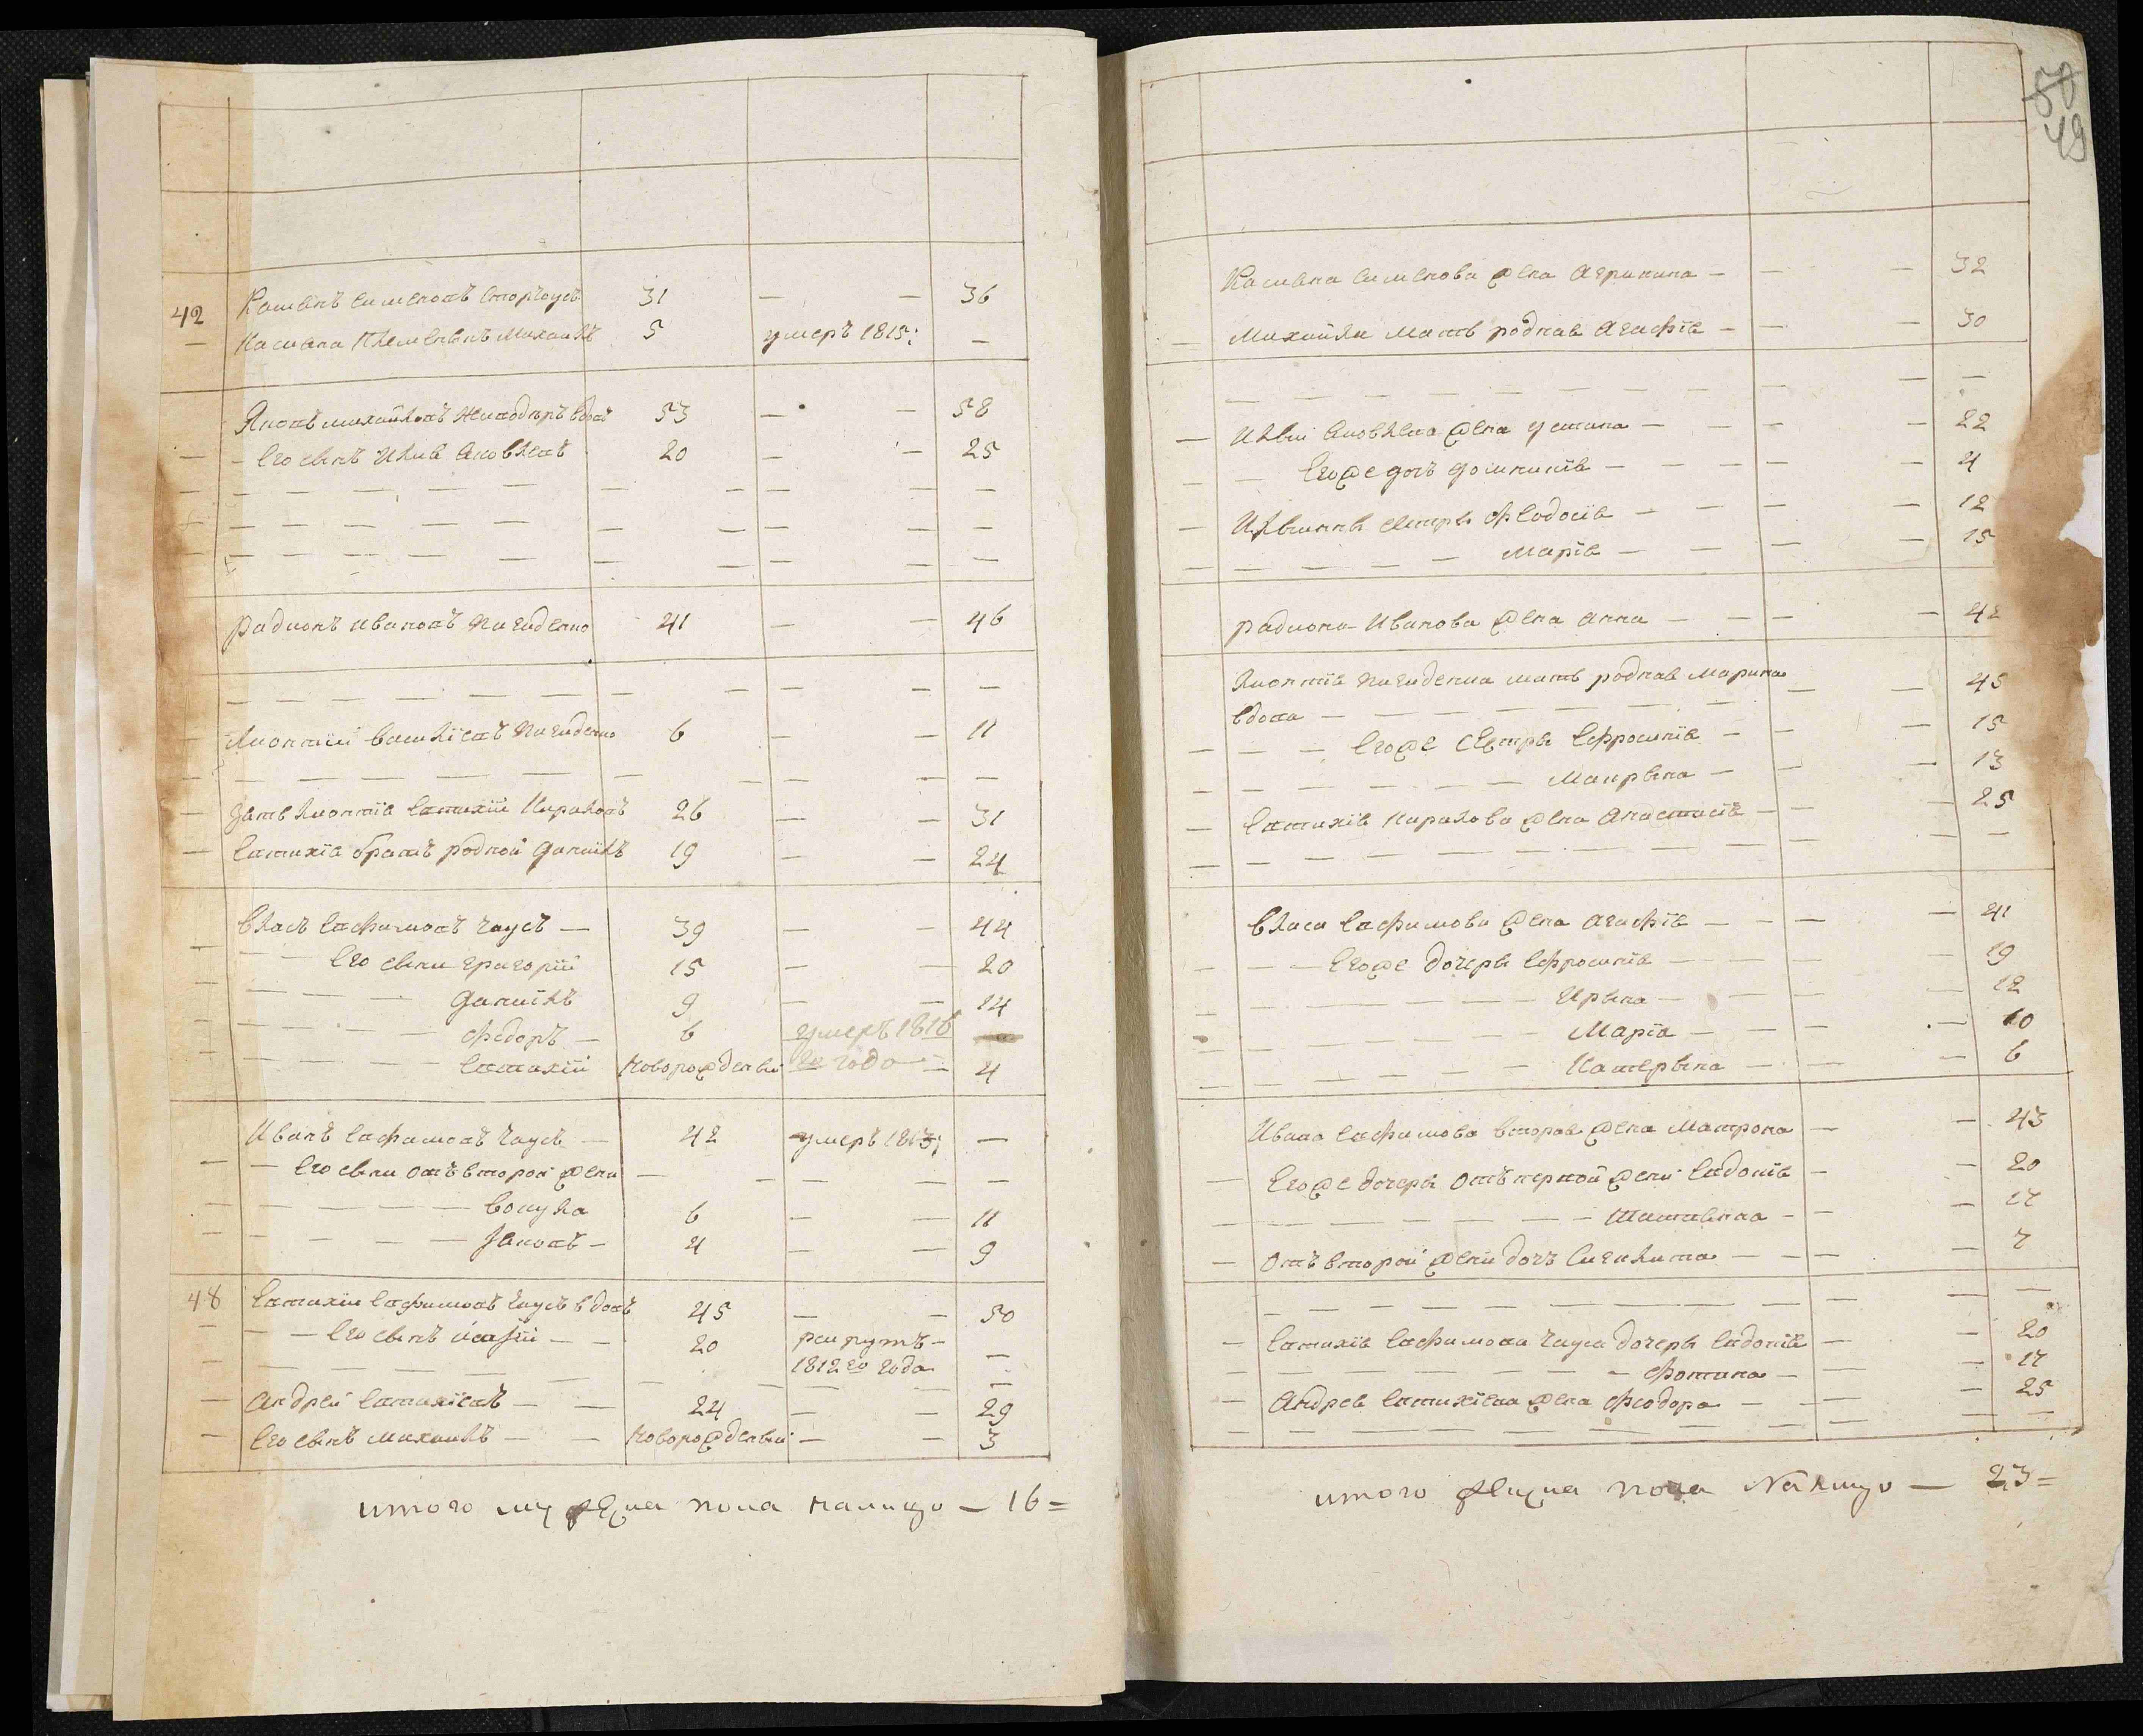 50
49
42 Касьянъ Симеоновъ Сторчоусъ 31 — — 36
— Касьяна племеникъ Михаилъ 5 умеръ 1815: —
Яковъ михайловъ Живодеръ вдовъ 53 — — 58
— его сынъ Илия Яковлевъ 20 — — 25
Радионъ Ивановъ Нагиденко 41 — — 46
Лионтий василиевъ Нагиденко 6 — — 11
зять Лионтия Евтихий Кириловъ 26 — — 31
— Евтихия братъ родной Даниилъ 19 — — 24
Власъ Евфимовъ чаусъ — 39 — — 44
— — его сыны григорий 15 — — 20
Данийлъ 9 — — 14
Федоръ — 6 умеръ 1816 —
Евтихий новорожденный го года — 4
Иванъ Евфимовъ Чаусъ — 42 умеръ 1813: —
— — его сыны отъ второй жены — — — — —
Вокула 6 — — 11
Яковъ — 4 — — 9
48 Евтихий Евфимовъ Чаусъ вдовъ 45 — — 50
— — его сынъ — — 20 рекрутъ —
1812 го года —
— Андрей Евтихиевъ — — 24 — — 29
— его сынъ михаилъ — — новорожденный — — 3
итого мужеска пола налицо — 16 =
Касьяна Симеонова жена Агрипина — — — 32
— Михайлы мать родная Агафия — — — 30
— Ильи Яковлева жена устина — — — — 22
— — егоже дочь домникия — — — — 4
— Ильины сестры Феодосия — — — — 12
Мария — — — — 15
Радиона Иванова жена Анна — — — — 42
Лионтия Нагиденка мать родная Марина — — 45
вдова —
— — — егоже сестры Ефросиния — — — 15
Маирына — — — 13
— Евтихия Кирилова жена Анастасия — — — 25
Власа Евфимова жена Агафия — — — — 41
— — — егоже дочеры Ефросиния — — — — 19
Ирына — — — — 12
Мария — — — — 10
Катерына — — — 6
Ивана Евфимова вторая жена Матрона — — 43
— егоже дочеры отъ первой жены Евдокия — — 20
Татиянна — — — 17
— отъ второй жены дочь Гликита — — — — 7
— Евтихия Евфимова чауса дочеры Евдокия — — 20
Фотина — — — 17
— Андрея Евтихиева жена Феодора — — — — 25
итого женска пола Налицо — 23 =